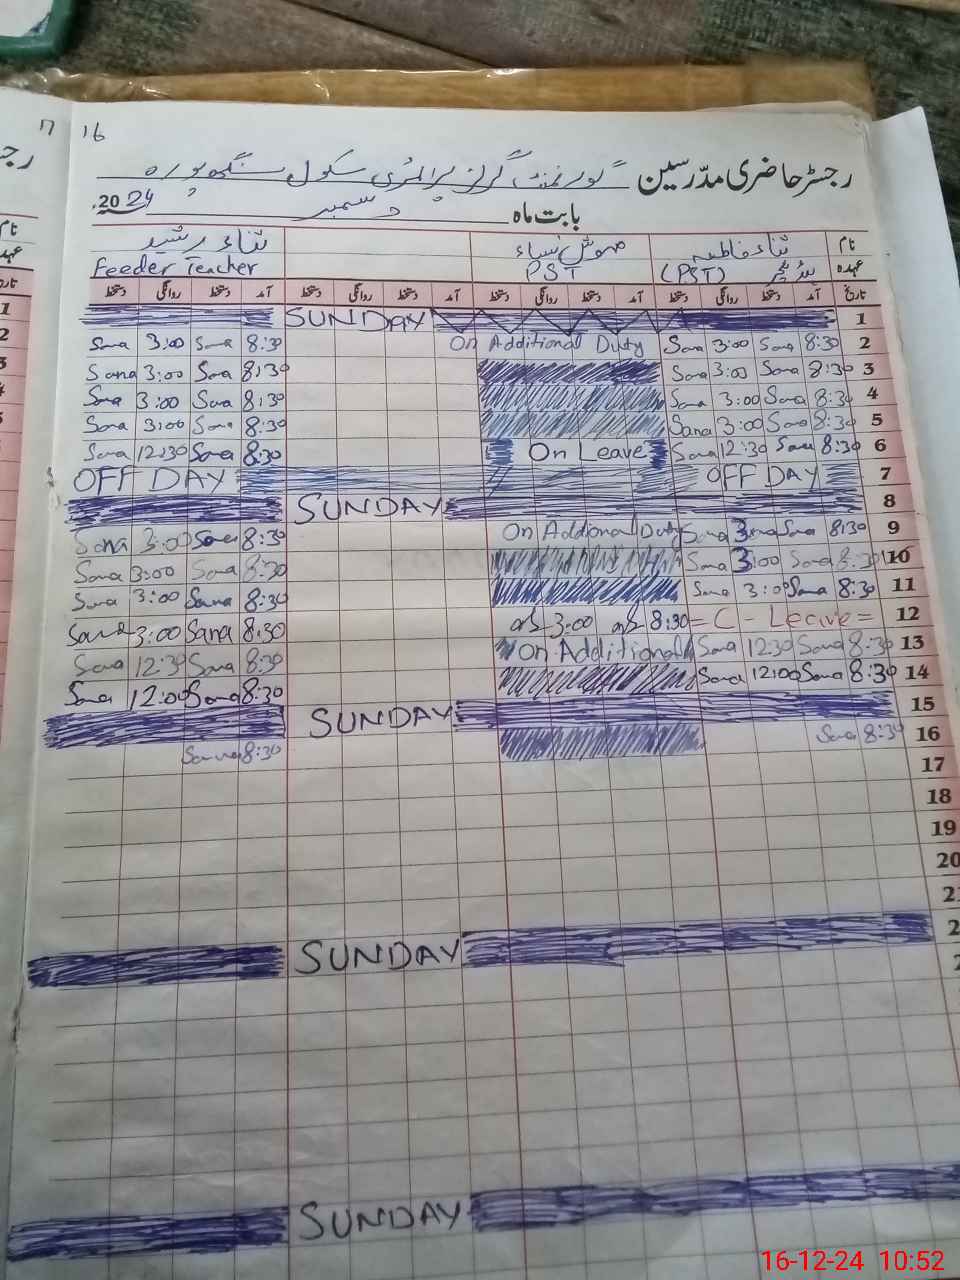 16
رجسٹر حاضری مدّرسین گورنمنٹ گرلز پرائمری سکول سنگھ پورہ
بابت ماہ دسمبر 2024ء
نام ثناء فاطمہ مہوش نساء ثناء رشید
عہدہ ہیڈ ٹیچر (PST) PST Feeder Teacher
تاریخ آمد دستخط روانگی دستخط آمد دستخط روانگی دستخط آمد دستخط روانگی دستخط آمد دستخط روانگی دستخط
SUNDAY 1
Sana 3:00 Sana 8:30 On Additional Duty Sana 3:00 Sana 8:30 2
Sana 3:00 Sana 8:30 Sana 3:00 Sana 8:30 3
Sana 3:00 Sana 8:30 Sana 3:00 Sana 8:30 4
Sana 3:00 Sana 8:30 Sana 3:00 Sana 8:30 5
Sana 12:30 Sana 8:30 On Leave Sana 12:30 Sana 8:30 6
OFF DAY OFF DAY 7
SUNDAY 8
Sana 3:00 Sana 8:30 On Addional Duty Sana 3:00 Sana 8:30 9
Sana 3:00 Sana 8:30 Sana 3:00 Sana 8:30 10
Sana 3:00 Sana 8:30 Sana 3:00 Sana 8:30 11
Sana 3:00 Sana 8:30 3:00 8:30 = C - Leave = 12
Sana 12:30 Sana 8:30 On Additional Sana 12:30 Sana 8:30 13
Sana 12:00 Sana 8:30 Sana 12:00 Sana 8:30 14
SUNDAY 15
Sana 8:30 Sana 8:30 16
17
18
19
20
SUNDAY
SUNDAY
16-12-24 10:52